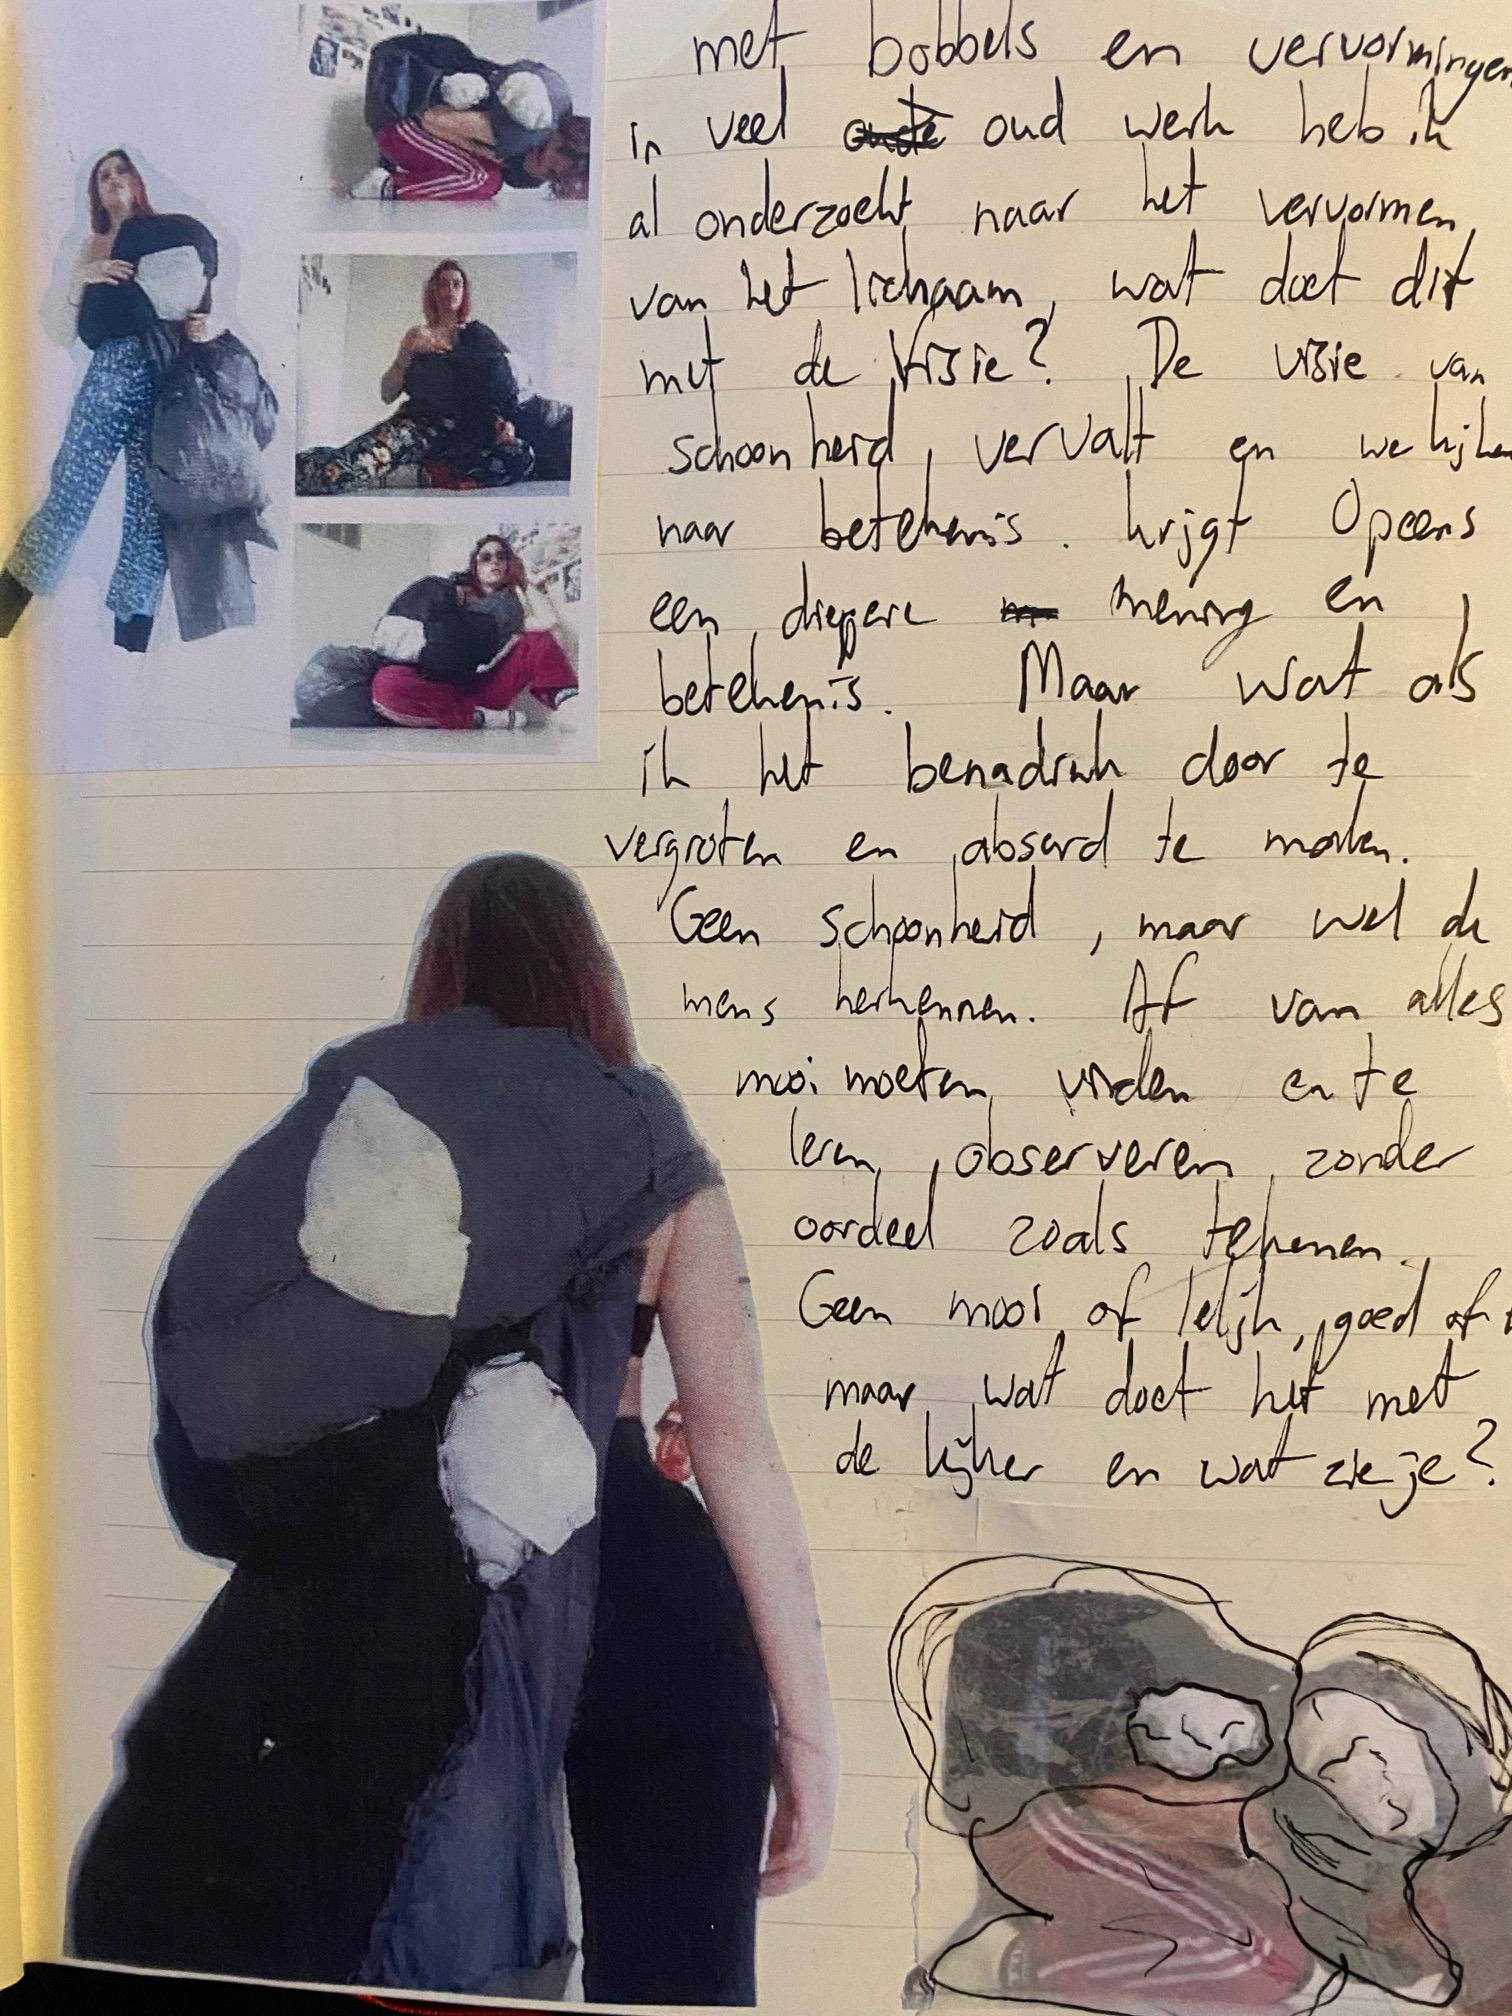 met bobbels en vervormingen
in veel oude oud werk heb ik
al onderzocht naar het vervormen
van het lichaam, wat doet dit
met de visie? De visie van
schoonheid, vervalt en we kijken
naar betekenis. krijgt Opeens
een diepere mening en
betekenis. Maar wat als
ik het benadruk door te
vergroten en absurd te maken.
Geen schoonheid, maar wel de
mens herkennen. Af van alles
mooi moeten vinden en te
leren observeren zonder
oordeel zoals tekenen.
Geen mooi of lelijk, goed of
maar wat doet het met
de kijker en wat zie je?